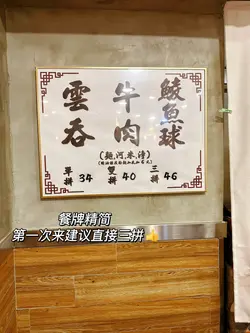 雲吞
牛肉
鯪魚球
(麵.河.米.淨)
單拼 34
雙拼 40
三拼 46
餐牌精简
第一次来建议直接三拼👍